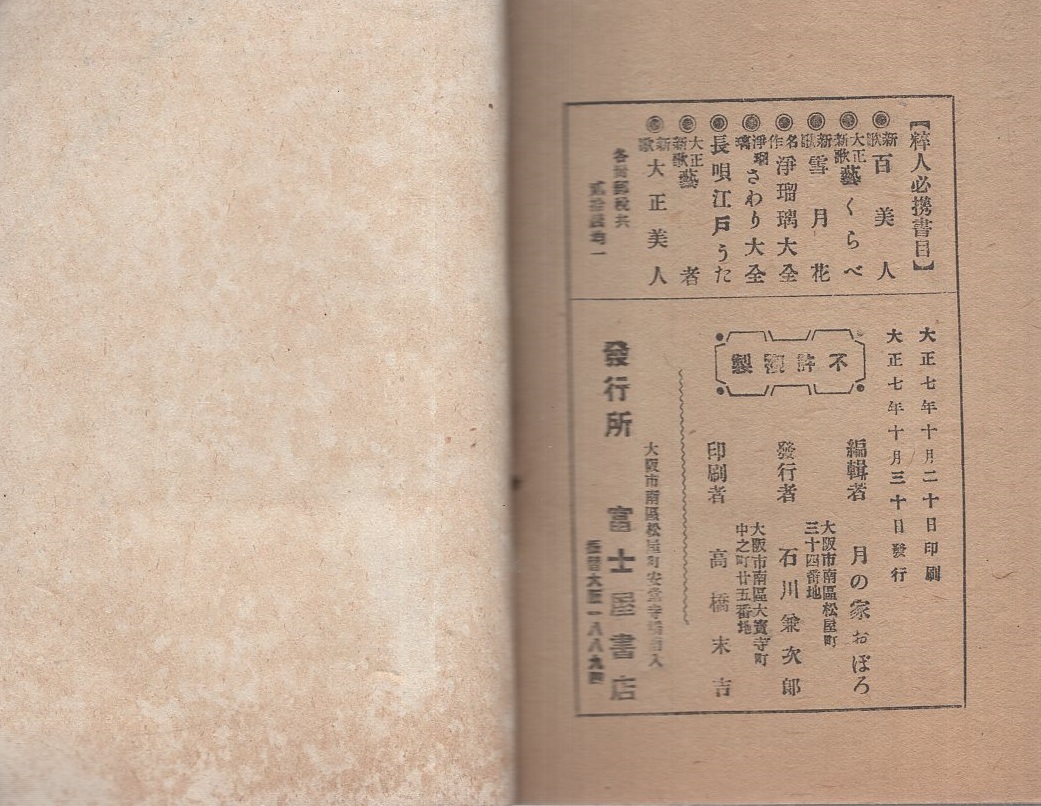 【粹人必携書目】
◉新歌百美人
◉大正新歌藝くらべ
◉新歌雪月花
◉名作淨瑠璃大全
◉淨瑠璃さわり大全
◉長唄江戸うた
◉大正新歌藝者
◉新歌大正美人
各冊郵税共
大正七年十月二十日印刷
大正七年十月三十日發行
不許複製
編輯者 月の家おぼろ
大阪市南區松屋町
三十四番地
發行者 石川兼次郎
大阪市南區大寳寺町
中之町廿五番地
印刷者 高橋末吉
大阪市南區松屋町安堂寺橋南入
發行所 富士屋書店
振替大阪一八八九